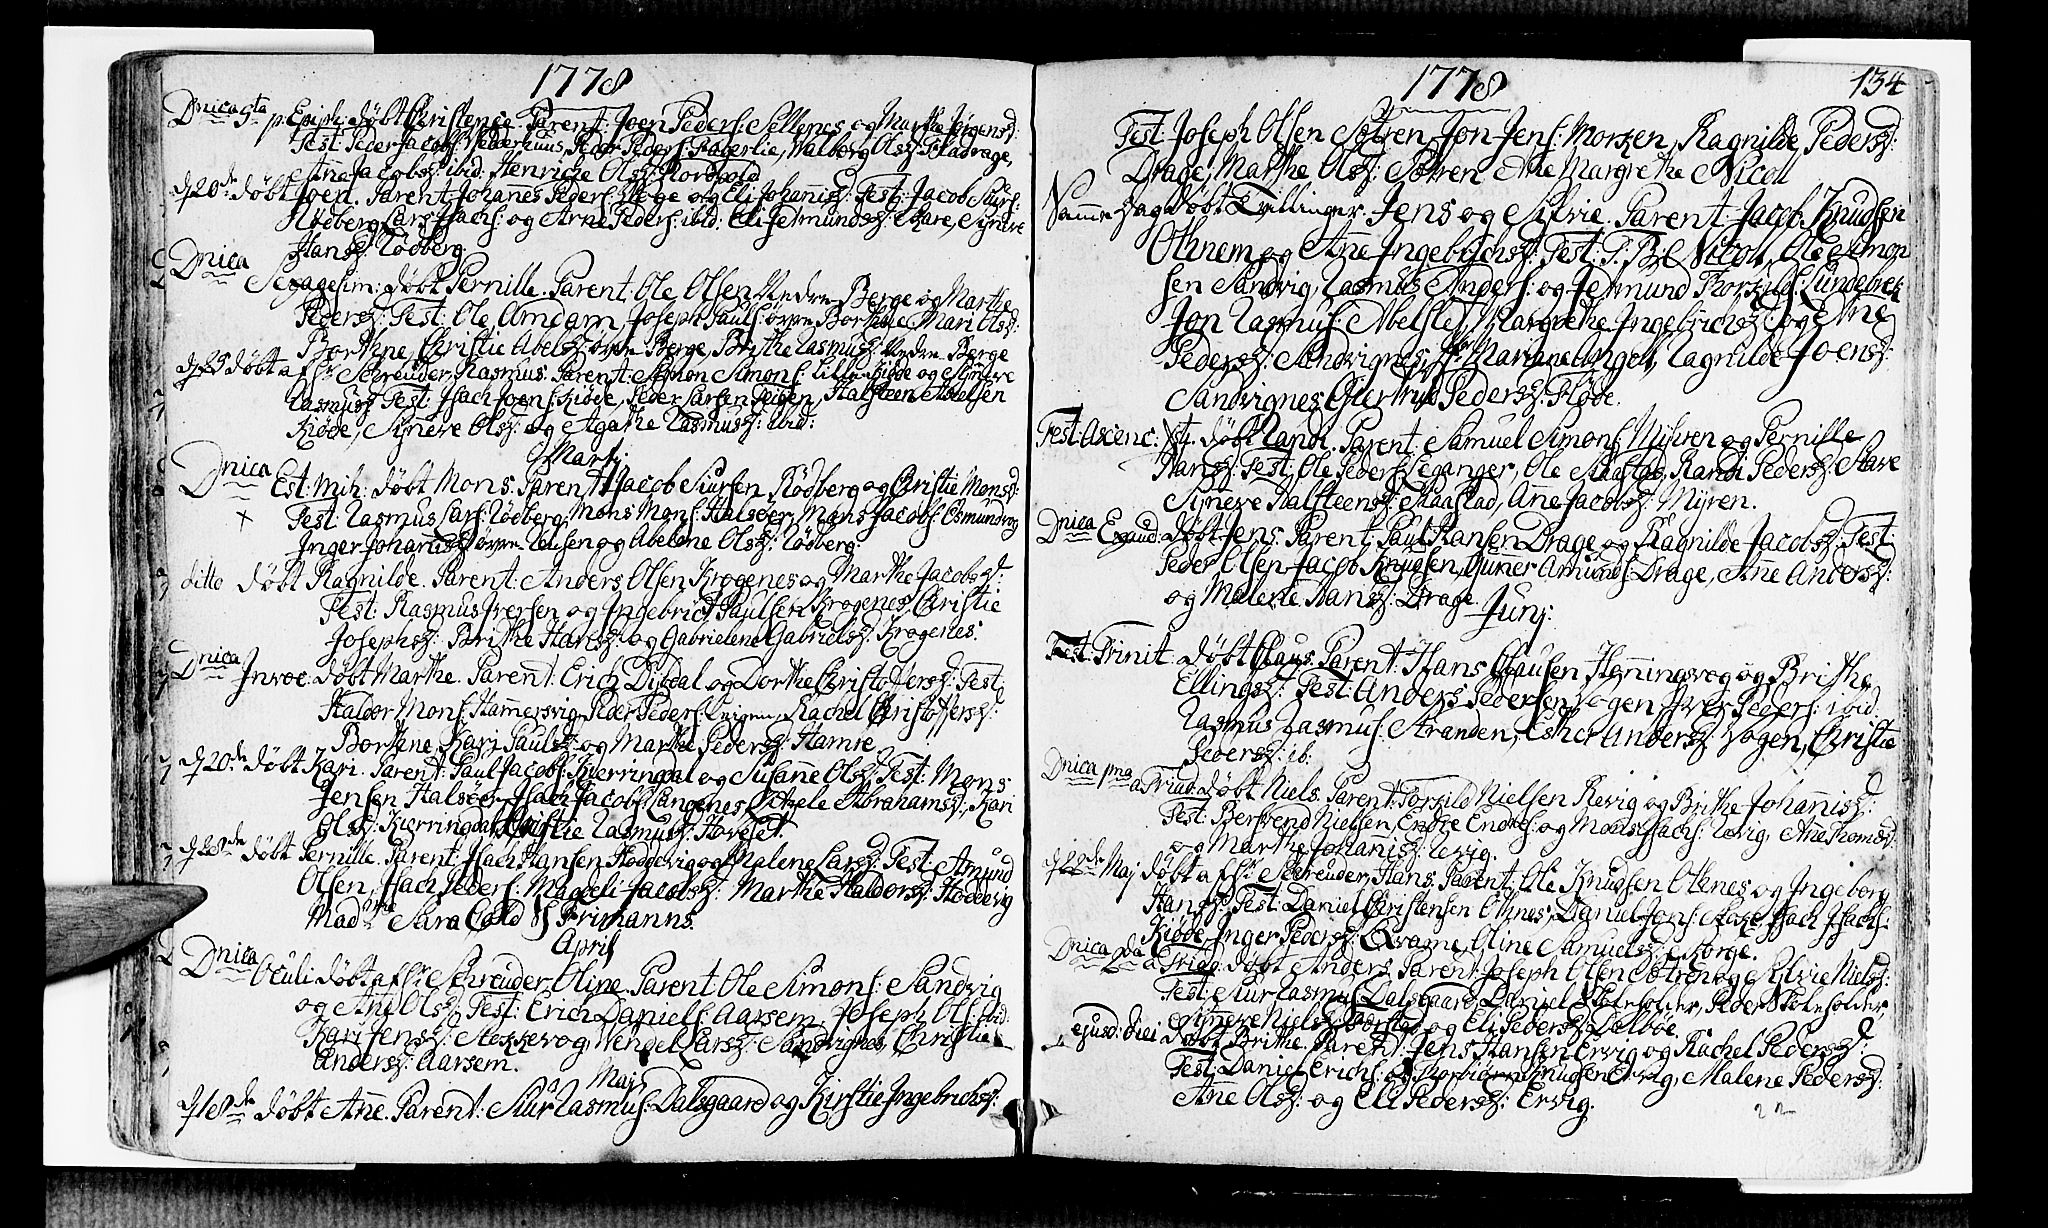 1778
Dnica 5ta p. Epiph: døbt Christence. Parent: Joen Peders: Sellenes og Marthe Jørgensd:
Test: Peder Jacobs: Peder Peders: Fagerlie, Walborg Olsd: Fladrage,
Anne Jacobsd: ibid: Henriche Olsd: Nordpold
d 20de døbt Joen. Parent: Johannes Peders: Hoge og Eli Johannisd: Test: Jacob Siurs:
Rødberg, Lars Isachs: og Arne Peders: ibid: Eli Jetmundsd: Skare, Synneve
Hansd: Rødberg
Dnica Sexagesim: døbt Pernille. Parent: Ole Olsen Nedre Berge og Marthe
Pedersd: Test: Ole Amdam, Joseph Pauls: øvre Borthne Mari Olsd:
Borthne, Christie Abelsd: øvre Berge, Brithe Rasmusd: Nedre Berge
d 25 døbt af Hr Schreuder, Rasmus. Parent: Simon Simons: Lille Kiøde og Synneve
Rasmusd: Test: Isach Joens: Kiøde, Peder Larsen Teigen, Halsteen Abelsen
Kiøde, Synneve Olsd: og Agathe Rasmusd: ibid:
Martj
Dnica Est: mih: døbt Mons. Parent: Jacob Siursen Rødberg og Christie Monsd:
Test: Rasmus Lars: Rødberg, Mons Mons: Halsøer, Mons Jacobs: Osmundvog
Inger Johannisd: øvre og Abelone Olsd: Rødberg.
ditto døbt Ragnilde. Parent: Anders Olsen Krogenes og Marthe Jacobsd:
Test: Rasmus Iversen og Ingebrict Paulsen Krogenes, Christie
Josephsd: Brithe Hansd: og Gabrielene Gabrielsd: Krogenes.
Dnica Invoc: døbt Marthe. Parent: Erich Dybdal og Dorthe Christoffersd: Test:
Haldor Mons: Hammersvig, Peder Peders: Rachel Christoffersd:
Borthne, Kari Paulsd: og Marthe Pedersd: Hamre
d 20de døbt Kari. Parent: Paul Jacobs: Kierringdal og Susanne Olsd: Test: Mons
Jensen Halsøer, Isach Jacobs: Langenes, Axele Abrahamsd:, Kari
Olsd: Kierringdal, Christie Rasmusd: Hovset.
d 28de døbt Pernille. Parent: Isach Hansen Hoddevig og Malene Larsd: Test: Amund
Olsen, Isach Peders: Magdeli Jacobsd: Marthe Haldorsd: Hoddevig
Madme Sara Cold Sl Frimanns.
April
Dnica Oculi døbt af Hr Schreuder, Oline. Parent: Ole Simons: Sandvig
og Ane Olsd: Test: Erich Daniels: Aarsem. Joseph Ols: ibid:
Kari Jensd: Stokkevog, Wendel Larsd: Sandvignes, Christie
Andersd: Aarsem.
Maj
d 18de døbt Anne. Parent: Siur Rasmus: Dalsgaard og Kirstie Ingebrichsd:
1778
134
Test: Joseph Olsen Sætren, Jon Jens: Morken, Ragnilde Pedersd:
Drage, Marthe Olsd: Sætren Ane Margrethe Nicoll
Samme Dag døbt Tvillinger Jens og Silvie. Parent: Jacob Knudsen
Othnem og Ane Ingebrichsd: Test: Nicoll, Ole Simon
sen Sandvig, Rasmus Anders: og Jetmund Thorkilds: Lundebrek
Jon Rasmus: Abelsled, Margrethe Ingebrichsd: og Ane
Pedersd: Sandvignes, Mariane Angell, Ragnilde Joensd:
Sandvignes, Giertrud Pedersd: Fløde.
Fest: Ascenc: Xsti. døbt Randi. Parent: Samuel Simons: Myhren og Pernille
Hansd: Test: Ole Peders: Leganger, Ole Maastad, Randi Pedersd: Stave
Synneve Halsteensd: Maastad, Ane Jacobsd: Myren.
Dnica Exaud: døbt Jens. Parent: Paul Hansen Drage og Ragnilde Jacobsd: Test:
Peder Olsen, Jacob Knudsen, Gunner Amunds: Drage, Anne Andersd:
og Malene Hansd: Drage.
Junj:
Fest: Trinit: døbt Claus. Parent: Hans Clausen Hemningsvog og Brithe
Ellingsd: Test: Anders Pedersen Vogen, Iver Peders: ibid.
Rasmus Rasmus: Stranden, Esther Andersd: Vogen, Christie
Pedersd: ib:
Dnica pma a Trind: døbt Niels. Parent: Torkild Nielsen Revig og Brithe Johannisd:
Test: Bertvend Nielsen, Endre Endres: og Mons Isachs: Revig, Ane Thomasd:
og Marthe Johannisd: Revig.
d 28de Maj døbt af Hr Schreuder, Hans. Parent: Ole Knudsen Othnes og Ingeborg
Hansd: Test: Daniel Christensen Othnes, Daniel Jons: Isach Isachs:
Kiøde, Inger Pedersd: Qvamne, Oline Samuelsd: Storge.
Dnica 2da a Trid: døbt Anders. Parent: Joseph Olsen Sætren og Silvie Nielsd:
Test: Siur Rasmus: Dalsgaard, Daniel Skoleholder, Peder Skoleholder,
Synneve Nielsd: og Eli Pedersd: Dalbøe.
ejusd: diei døbt Brithe. Parent: Jens Hansen Ervig og Rachel Pedersd:
Test: Daniel Erichs: og Thorbiørn Knudsen Ervig, Malene Pedersd:
Ane Olsd: og Eli Pedersd: Ervig.
22